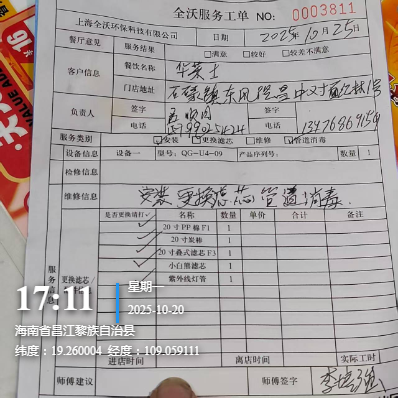 全沃服务工单 NO: 0003811
上海全沃环保科技有限公司 日期 2025年10月25日
餐厅意见 服务结果 □满意 □较好 □较差不满意
客户信息 餐饮名称 华莱士
门店地址 石碌镇东风
负责人 签字 签字
电话 电话
服务类别 安装 更换滤芯 □维修 管道消毒
设备信息 设备一 型号: QG-U4-09 产品序列号: 数量 1
检修信息
维修信息 安装 更换滤芯 管道消毒.
是否更换请打✓ 名称 数量 单价 合计 备注
✓ 20寸PP棉F1 1
✓ 20寸炭棒 1
✓ 20寸叠式滤芯F3 1
✓ 小白熊滤芯 1
紫外线灯管 1
服务 更换滤芯
17:11 星期一
2025-10-20
海南省昌江黎族自治县
纬度：19.260004 经度：109.059111
进店时间 离店时间 实际工时
师傅建议 师傅签字